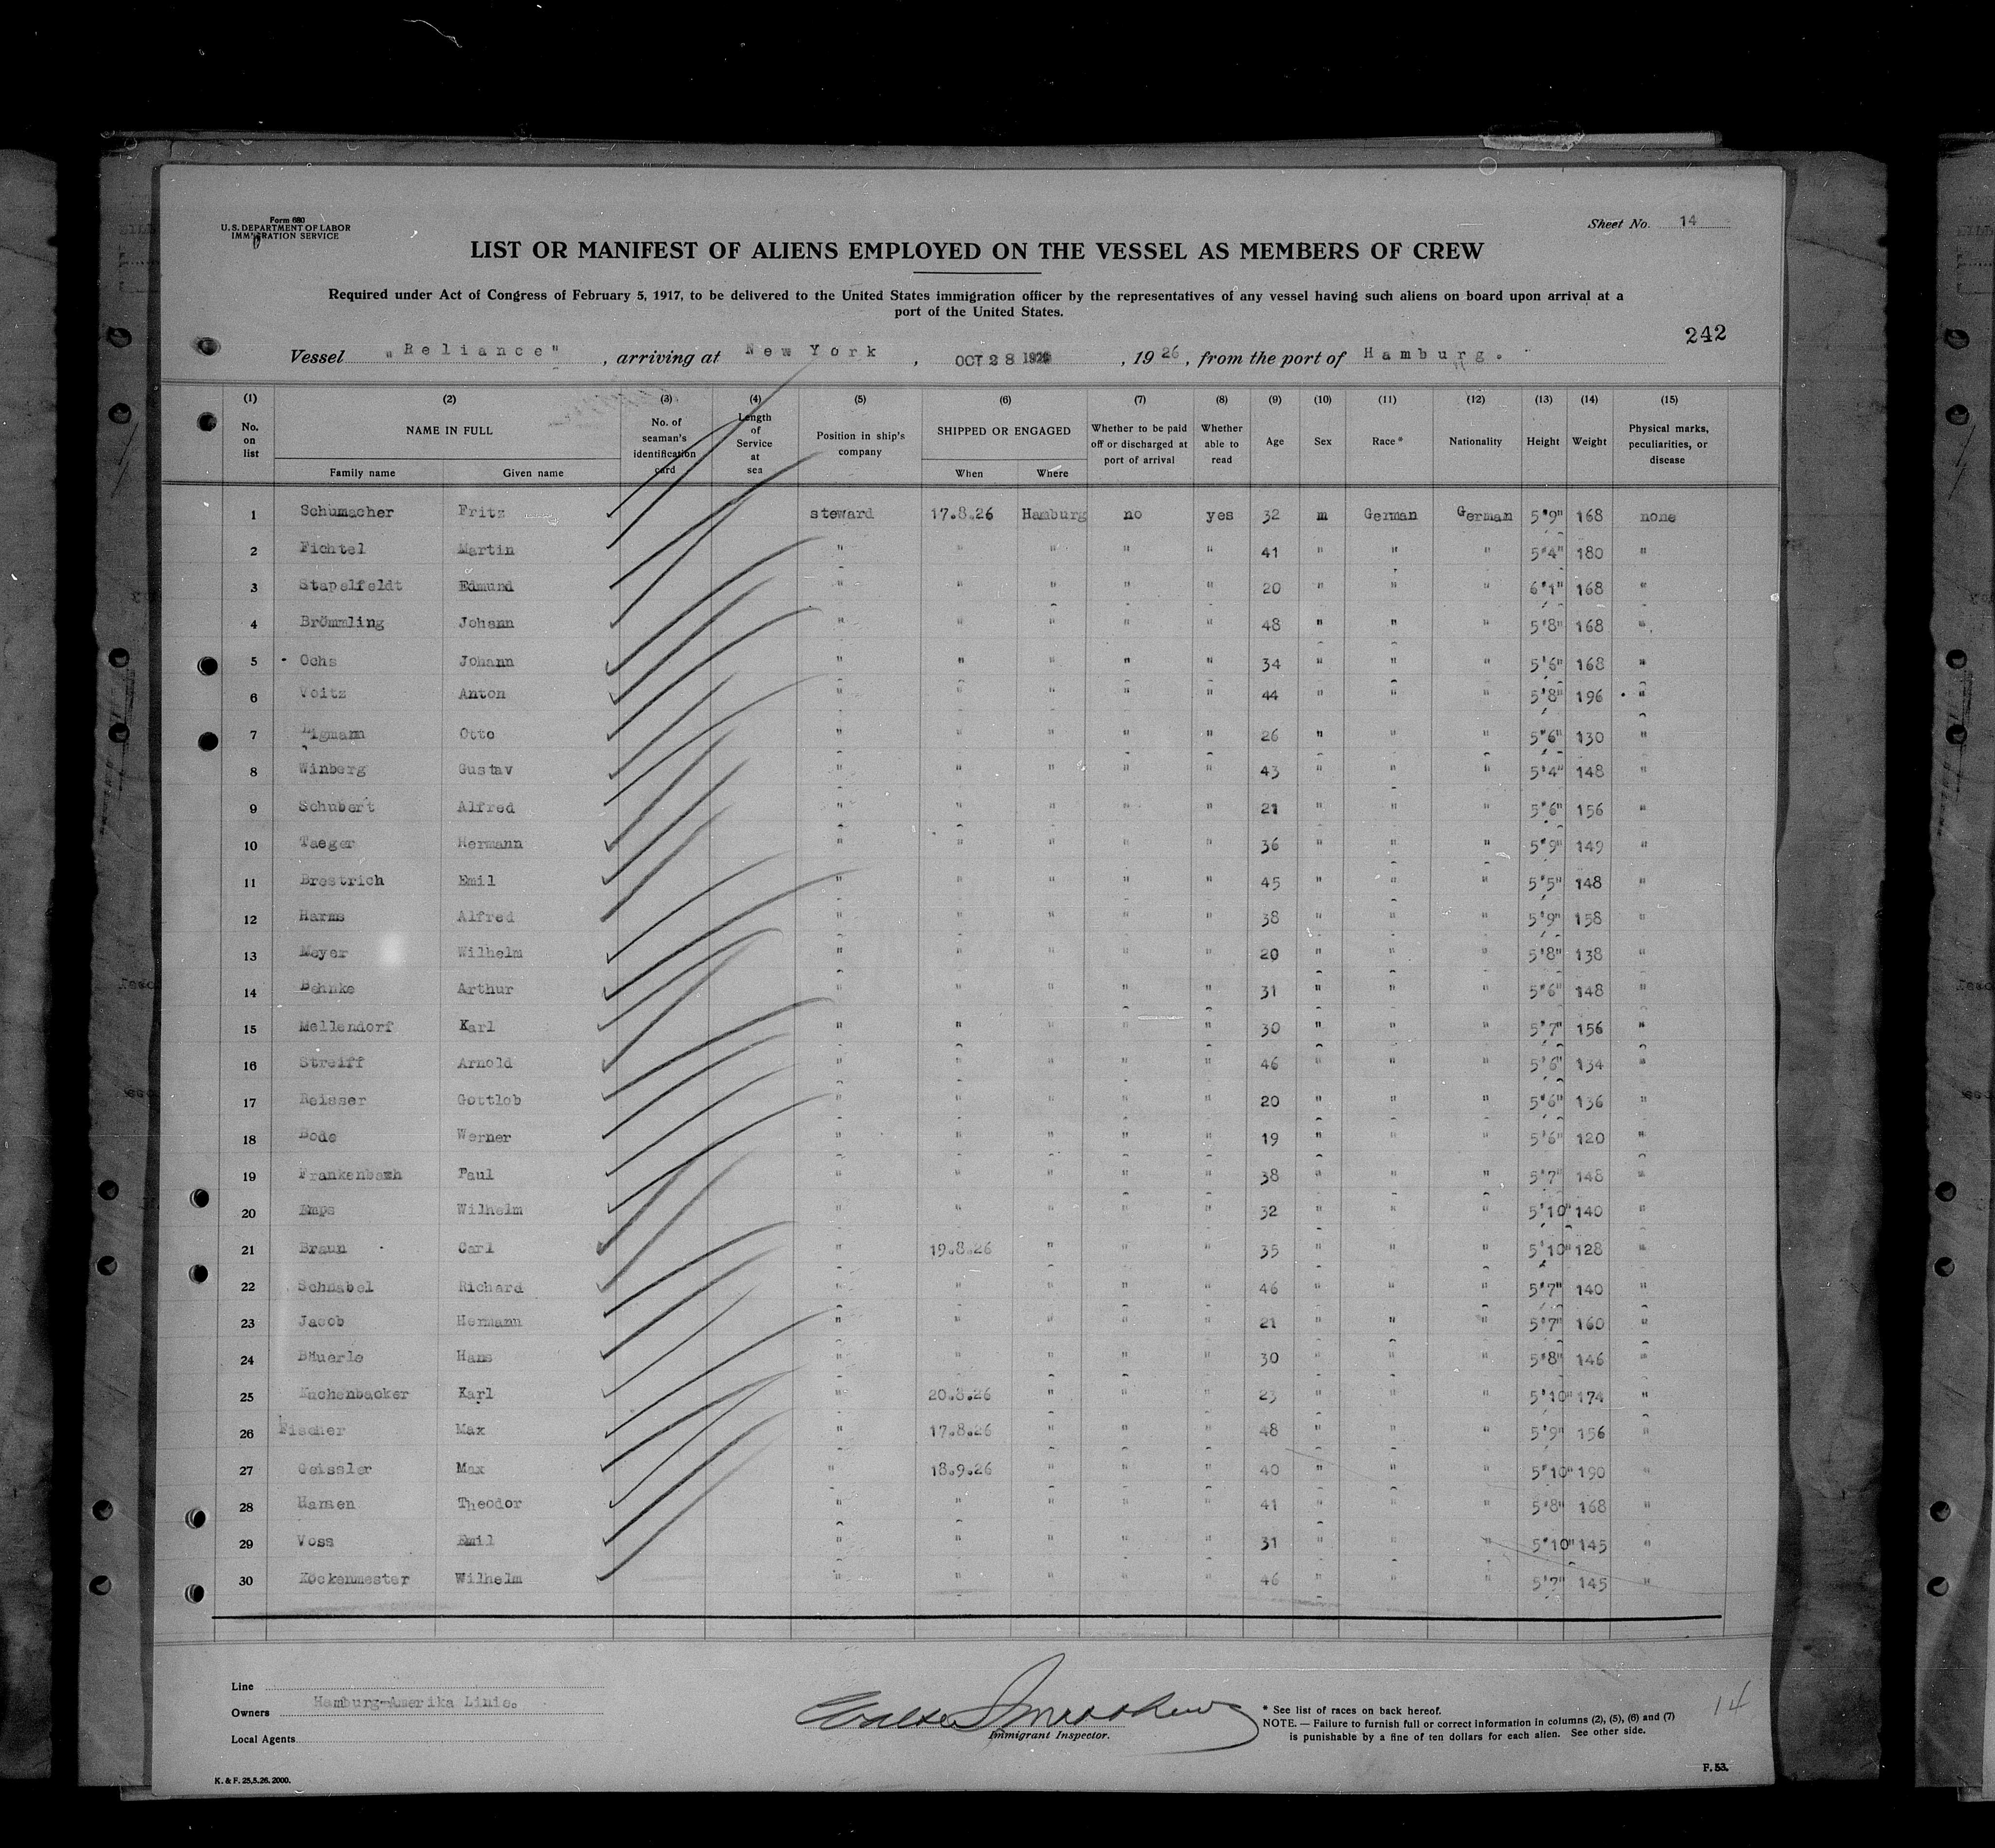 Form 680
U. S. DEPARTMENT OF LABOR
IMMIGRATION SERVICE
Sheet No. 14
LIST OR MANIFEST OF ALIENS EMPLOYED ON THE VESSEL AS MEMBERS OF CREW
Required under Act of Congress of February 5, 1917, to be delivered to the United States immigration officer by the representatives of any vessel having such aliens on board upon arrival at a
port of the United States.
242
Vessel "Reliance", arriving at New York, OCT 28 1926, 1926, from the port of Hamburg.
(1) (2) (3) (4) (5) (6) (7) (8) (9) (10) (11) (12) (13) (14) (15)
No. on list NAME IN FULL No. of seaman's identification card Length of Service at sea Position in ship's company SHIPPED OR ENGAGED Whether to be paid off or discharged at port of arrival Whether able to read Age Sex Race * Nationality Height Weight Physical marks, peculiarities, or disease
Family name Given name When Where
1 Schumacher Fritz steward 17.8.26 Hamburg no yes 32 m German German 5'9" 168 none
2 Fichtel Martin " " " " " 41 " " " 5'4" 180 "
3 Stapelfeldt Edmund " " " " " 20 " " " 6'1" 168 "
4 Brömmling Johann " " " " " 48 " " " 5'8" 168 "
5 Ochs Johann " " " " " 34 " " " 5'6" 168 "
6 Voitz Anton " " " " " 44 " " " 5'8" 196 "
7 Otto " " " " " 26 " " " 5'6" 130 "
8 Winberg Gustav " " " " " 43 " " " 5'4" 148 "
9 Schubert Alfred " " " " " 21 " " " 5'6" 156 "
10 Taeger Hermann " " " " " 36 " " " 5'9" 149 "
11 Brestrich Emil " " " " " 45 " " " 5'5" 148 "
12 Harms Alfred " " " " " 38 " " " 5'9" 158 "
13 Meyer Wilhelm " " " " " 20 " " " 5'8" 138 "
14 Behnke Arthur " " " " " 31 " " " 5'6" 148 "
15 Mellendorf Karl " " " " " 30 " " " 5'7" 156 "
16 Streiff Arnold " " " " " 46 " " " 5'6" 134 "
17 Reisser Gottlob " " " " " 20 " " " 5'6" 136 "
18 Bode Werner " " " " " 19 " " " 5'6" 120 "
19 Paul " " " " " 38 " " " 5'7" 148 "
20 Emps Wilhelm " " " " " 32 " " " 5'10" 140 "
21 Braun Carl " 19.8.26 " " " 35 " " " 5'10" 128 "
22 Schnabel Richard " " " " " 46 " " " 5'7" 140 "
23 Jacob Hermann " " " " " 21 " " " 5'7" 160 "
24 Bäuerle Hans " " " " " 30 " " " 5'8" 146 "
25 Karl " 20.8.26 " " " 23 " " " 5'10" 174 "
26 Fischer Max " 17.8.26 " " " 48 " " " 5'9" 156 "
27 Geissler Max " 18.9.26 " " " 40 " " " 5'10" 190 "
28 Theodor " " " " " 41 " " " 5'8" 168 "
29 Voss Emil " " " " " 31 " " " 5'10" 145 "
30 Köckenmester Wilhelm " " " " " 46 " " " 145 "
Line
Owners Hamburg-Amerika Linie.
Local Agents
Immigrant Inspector.
* See list of races on back hereof.
NOTE. — Failure to furnish full or correct information in columns (2), (5), (6) and (7)
is punishable by a fine of ten dollars for each alien. See other side.
14
K. & F. 25.5.26. 2000.
F. 53.